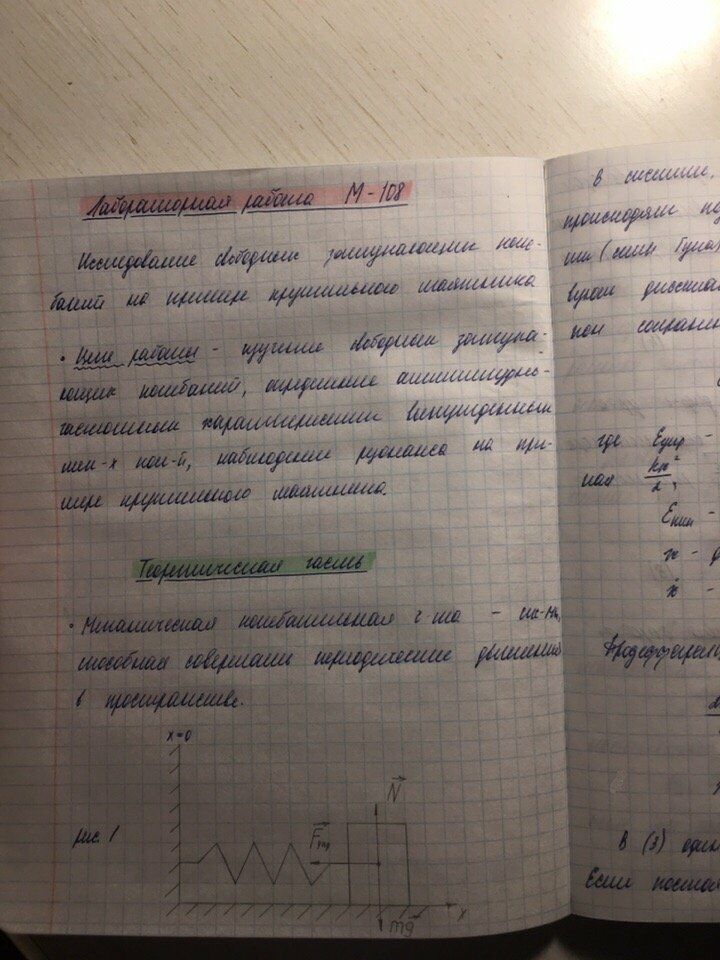 Лабораторная работа М-108
Исследование свободных затухающих коле-
баний на примере крутильного маятника
• Цель работы - изучение свободных затуха-
ющих колебаний, определение амплитудно-
частотных характеристик вынужденных
мех-х кол-й, наблюдение резонанса на при-
мере крутильного маятника.
Теоретическая часть
• Механическая колебательная с-ма -
способная совершать периодические движения
в пространстве.
x=0
N
рис. 1
Fупр
x
mg
в системе,
происходят
ти (силы
вучом
кон сохранен
где Eупр -
ная kx²/2,
Eкин -
x -
ẋ -
Продефферен
В (3)
Если